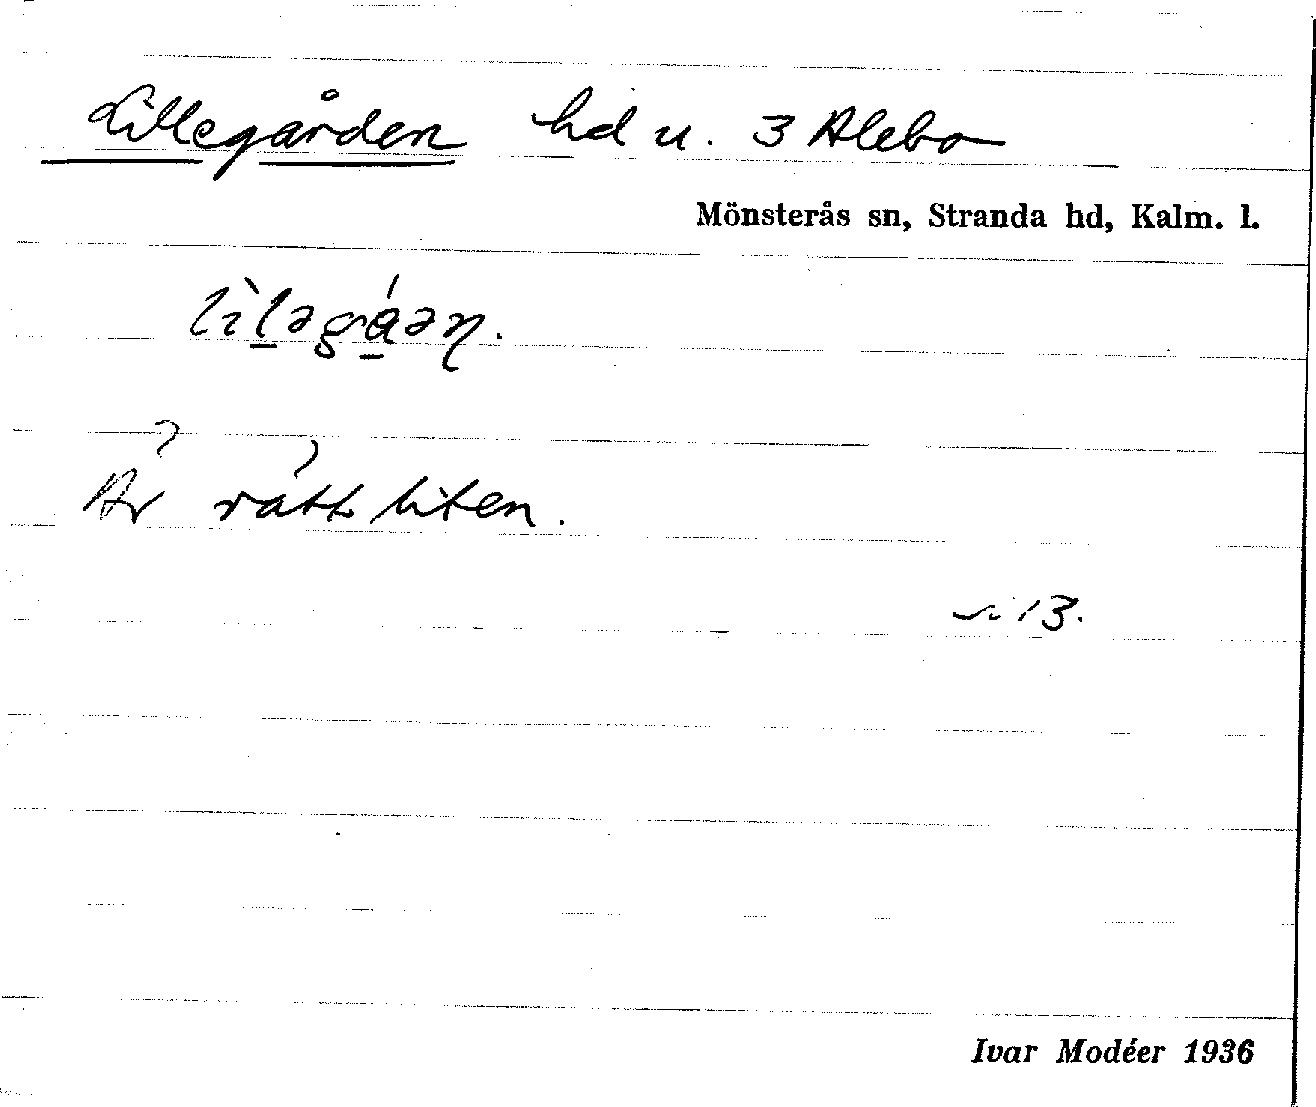 Lillegården hd u. 3 Alebo
Mönsterås sn, Stranda hd, Kalm. l.
lìləgáən.
Är rätt liten.
13.
Ivar Modéer 1936